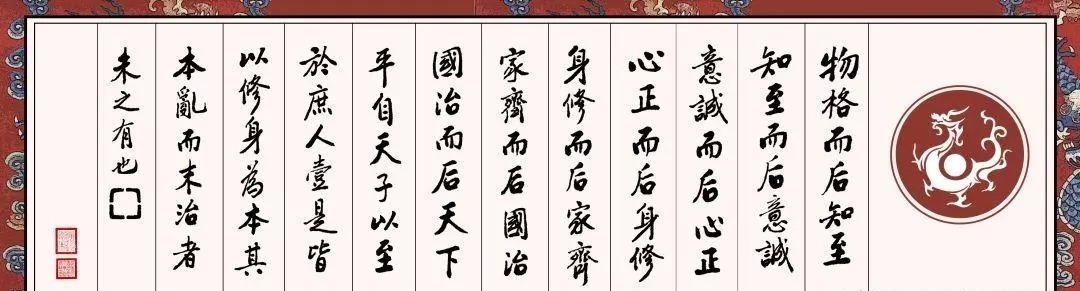 物格而后知至
知至而后意誠
意誠而后心正
心正而后身修
身修而后家齊
家齊而后國治
國治而后天下
平自天子以至
於庶人壹是皆
以修身為本其
本亂而末治者
未之有也